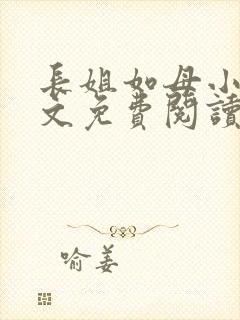 長姐如母小
文免費閱讀
喻姜